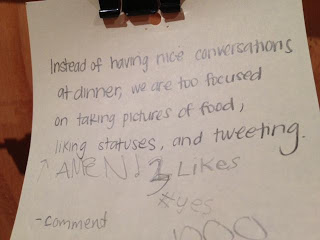 Instead of having nice conversations
at dinner, we are too focused
on taking pictures of food,
liking statuses, and tweeting.
↑ AMEN! 3 Likes
#yes
-comment